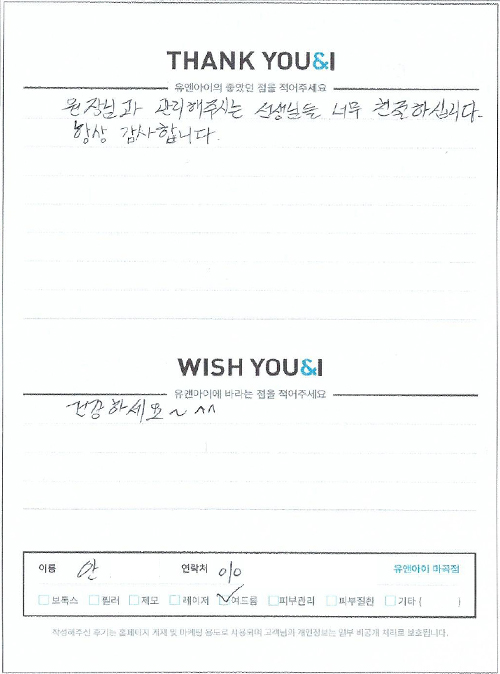 THANK YOU&I
유앤아이의 좋았던 점을 적어주세요
원장님과 관리해주시는 선생님들 너무 친절하십니다.
항상 감사합니다.
WISH YOU&I
유앤아이에 바라는 점을 적어주세요
건강하세요~ ^^
이름 안 연락처 010 유앤아이 마곡점
보톡스 필러 제모 레이저 여드름 피부관리 피부질환 기타 ( )
작성해주신 후기는 홈페이지 게재 및 마케팅 용도로 사용되며 고객님의 개인정보는 일부 비공개 처리로 보호됩니다.